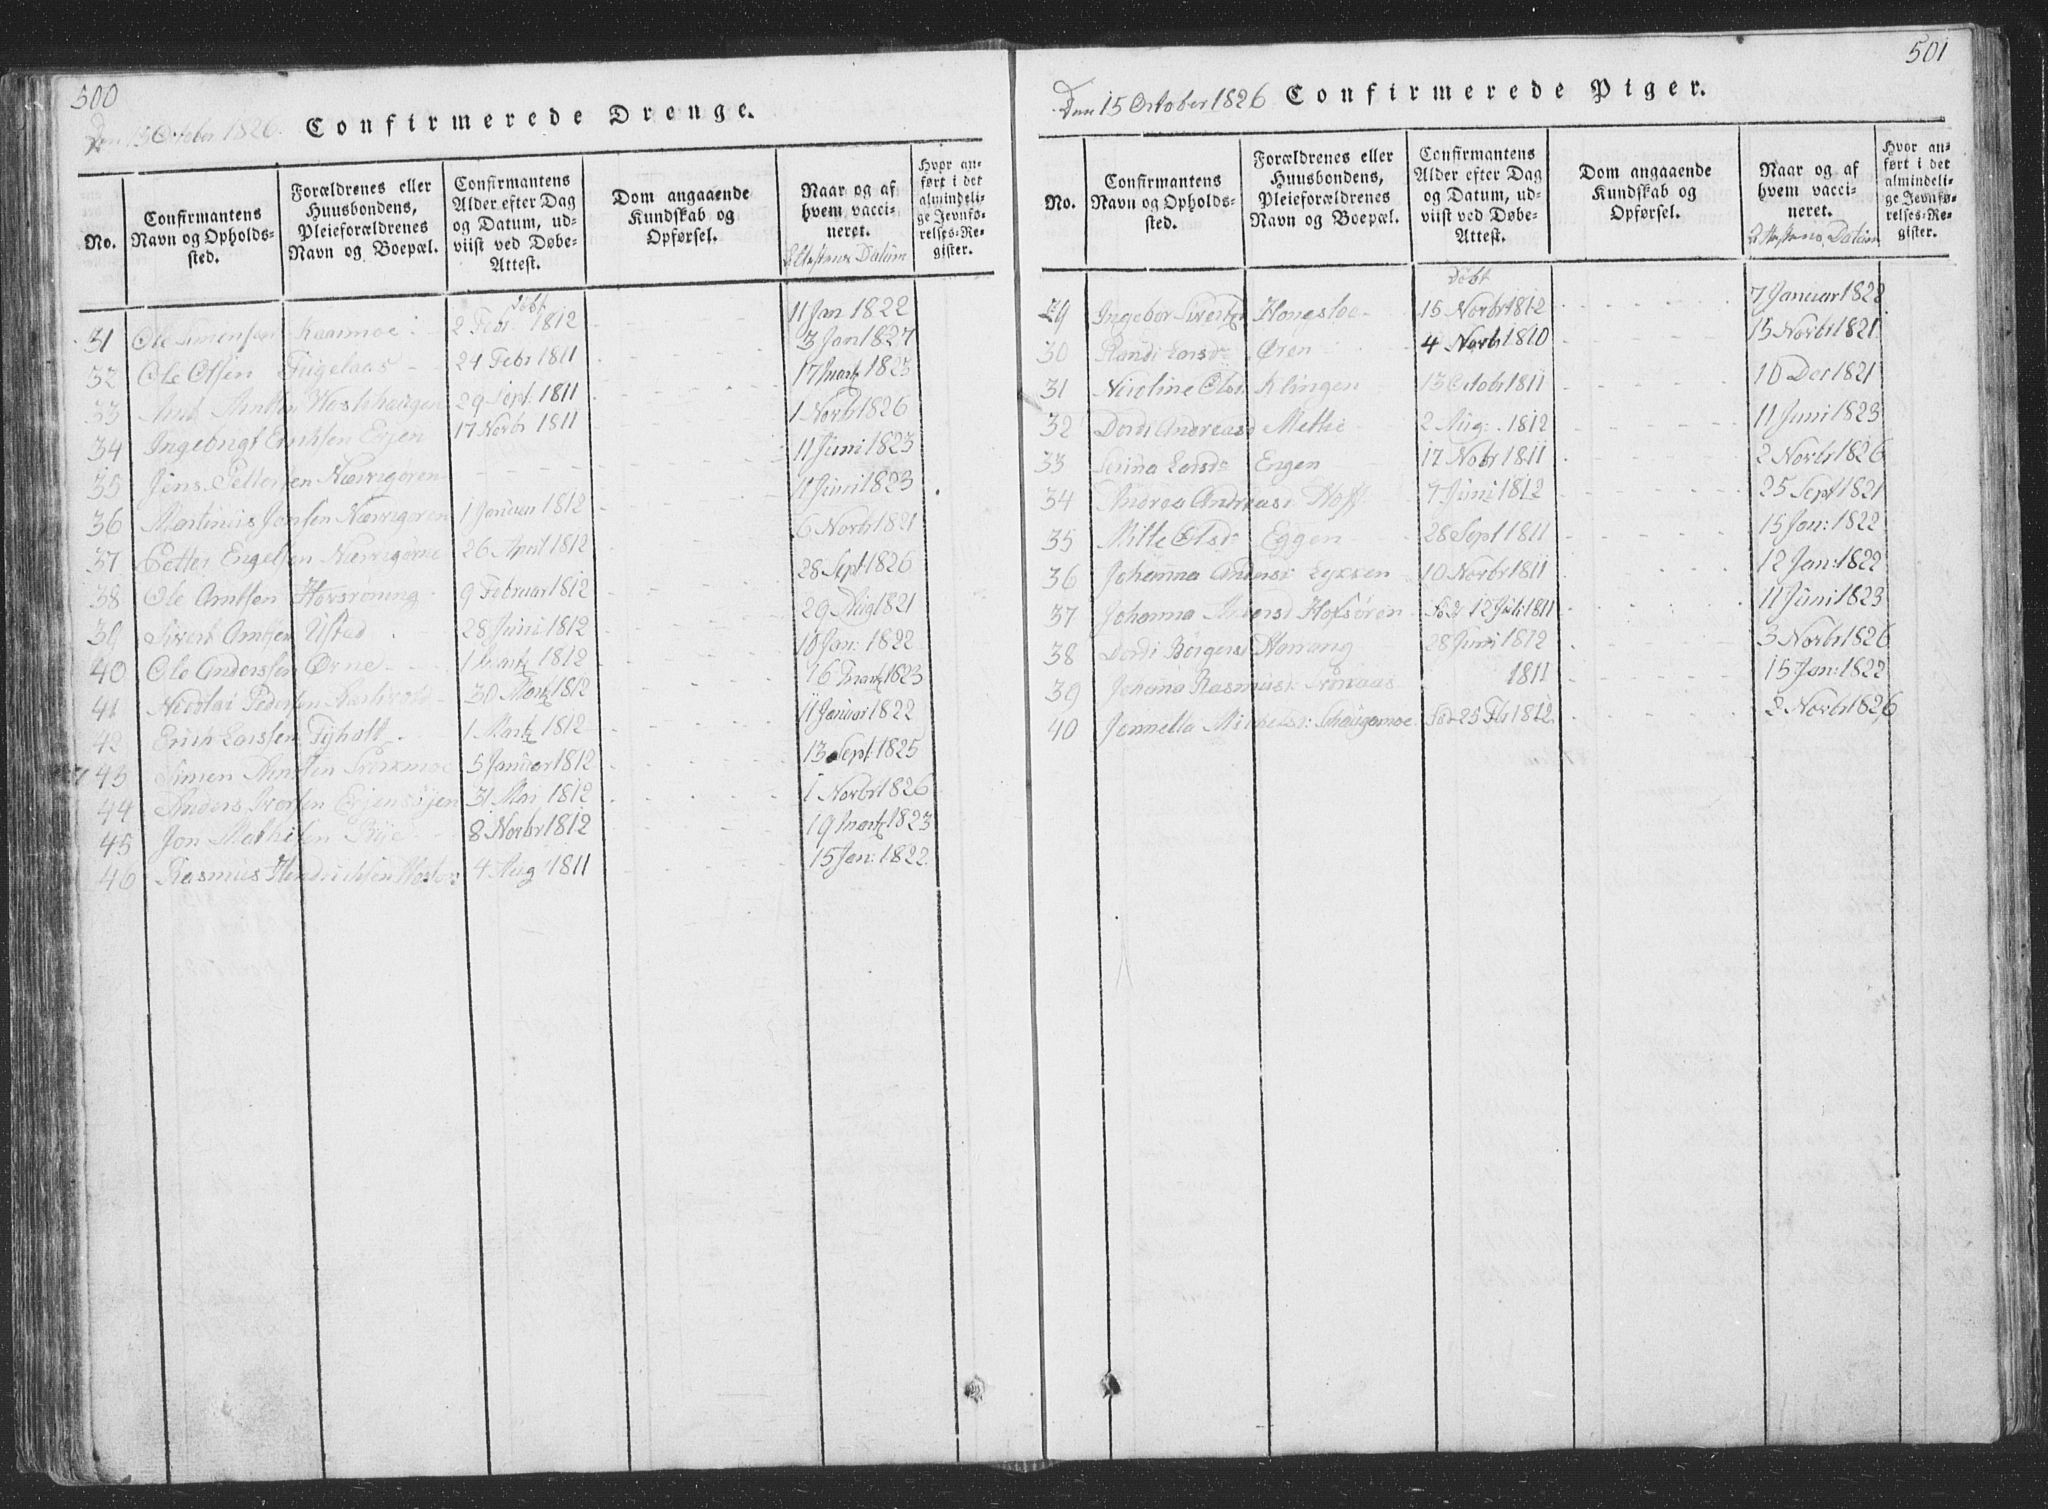 500
Den 15 October 1826. Confirmerede Drenge.
No. | Confirmantens Navn og Opholds-sted. | Forældrenes eller Huusbondens, Pleieforældrenes Navn og Boepæl. | Confirmantens Alder efter Dag og Datum, ud-viist ved Døbe-Attest. | Dom angaaende Kundskab og Opførsel. | Naar og af hvem vacci-neret. Attestens Datum | Hvor an-ført i det almindeli-ge Jevnfø-relses-Re-gister.
Døbt
31 Ole Simensen Raanmoe 2 Febr 1812 11 Jan 1822
32 Ole Olsen Fugelaas 24 Febr 1811 3 Jan 1827
33 Arnt Arntsen Westehaugen 29 Sept: 1811 17 Martz 1823
34 Ingebrigt Erichsen Erjen 17 Norbr 1811 1 Norbr 1826
35 Jens Pettersen Nævregøren 11 Juni 1823
36 Martinus Jonsen Nævregøren 1 Januar 1812 11 Juni 1823
37 Petter Engelsen Nævregørne 26 April 1812 6 Norbr 1821
38 Ole Arntsen Hovsrøning 9 Februar 1812 28 Sept 1826
39 Sivert Arntsen Ustad 28 Juni 1812 29 Aug 1821
40 Ole Anderssen Ørne 1 Martz 1812 10 Jan: 1822
41 Nicolai Pedersen 30 Martz 1812 16 Martz 1823
42 Erich Larssen Tyholt 1 Martz 1812 11 Januar 1822
43 Simen Arntsen 5 Januar 1812 13 Sept: 1825
44 Anders Iversen Erjensøjen 31 Mai 1812 1 Norbr 1826
45 Jon Mathisen Rye 8 Norbr 1812 19 Martz 1823
46 Rasmus Hendrichsen 4 Aug 1811 15 Jan: 1822
501
Den 15 October 1826 Confirmerede Piger.
No. | Confirmantens Navn og Opholds-sted. | Forældrenes eller Huusbondens, Pleieforældrenes Navn og Boepæl. | Confirmantens Alder efter Dag og Datum, ud-viist ved Døbe-Attest. | Dom angaaende Kundskab og Opførsel. | Naar og af hvem vacci-neret. Attestens Datum | Hvor an-ført i det almindeli-ge Jevnfø-relses-Re-gister.
Døbt
29 Ingebor Sivertsd Hongsloe 15 Norbr 1812 7 Januar 1822
30 Randi Larsdr Øren 4 Norbr 1810 15 Norbr 1821
31 Nicoline Olsd Klingen 13 Octobr 1811 10 Dec 1821
32 Dordi Andreasd Mellie 2 Aug. 1812 11 Juni 1823
33 Serina Larsdr Engen 17 Nobr 1811 2 Norbr 1826
34 Andrea Andreasd Hoff 7 Juni 1812 25 Sept 1821
35 Mille Olsdr Eggen 28 Sept 1811 15 Jan: 1822
36 Johanna Andersd Lykken 10 Norbr 1811 12 Jan: 1822
37 Johanna Hofsøren Fød 12 Juli 1811 11 Juni 1823
38 Dordi Børgersd Harrang 28 Juni 1812 3 Norbr 1826
39 Johanna Rasmusd: 1811 15 Jan: 1822
40 Jonnetta Michelsd: Schaugamoe Fød 25 Fbr 1812 2 Norbr 1826